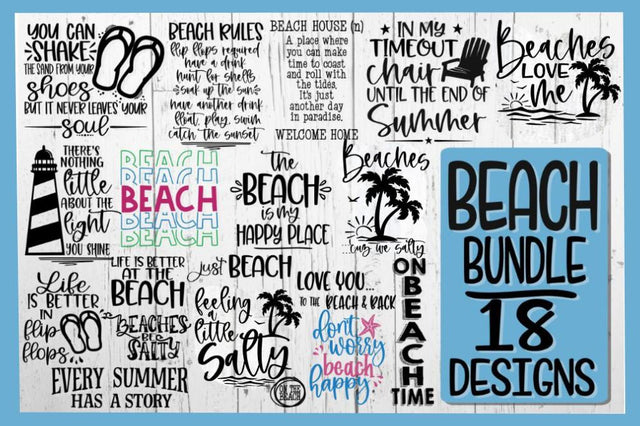 YOU CAN
SHAKE
THE SAND FROM YOUR
shoes
BUT IT NEVER LEAVES YOUR
soul
BEACH RULES
flip flops required
have a drink
hunt for shells
soak up the sun
have another drink
float, play, swim
catch the sunset
BEACH HOUSE (n)
A place where
you can make
time to coast
and roll with
the tides.
It's just
another day
in paradise.
WELCOME HOME
IN MY
TIMEOUT
chair
UNTIL THE END OF
Summer
Beaches
LOVE
me
THERE'S
NOTHING
little
ABOUT THE
light
YOU SHINE
BEACH
BEACH
BEACH
BEACH
BEACH
The
BEACH
is my
HAPPY PLACE
Beaches
'cuz we salty
BEACH
BUNDLE
18
DESIGNS
Life
IS BETTER
IN
flip
flops
LIFE IS BETTER
AT THE
BEACH
BEACHES
BE
SALTY
EVERY SUMMER
HAS A STORY
just BEACH
feeling
a little
Salty
ON THE
BEACH
LOVE YOU...
TO THE BEACH & BACK
dont
worry
beach
happy
ON
BEACH
TIME